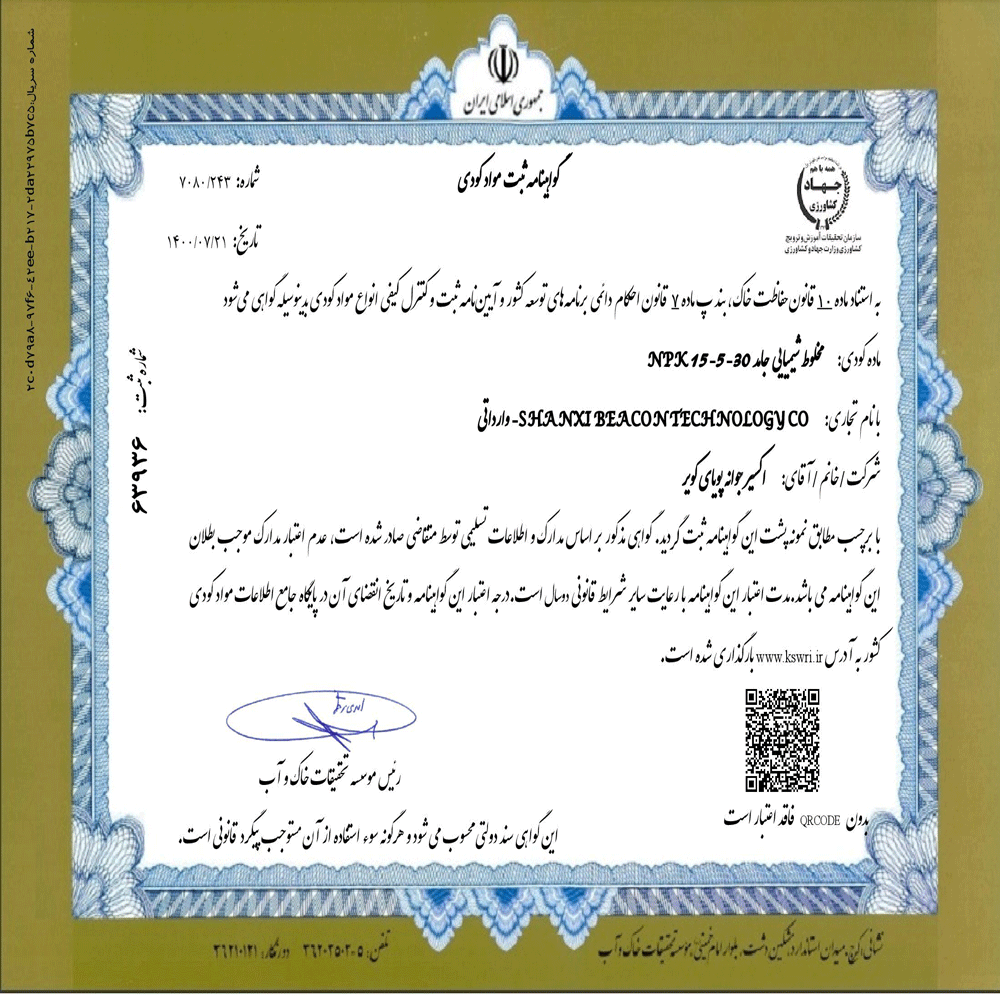 جمهوری اسلامی ایران
شماره سریال:
همه با هم
جهاد
کشاورزی
سازمان تحقیقات آموزش و ترویج
کشاورزی وزارت جهاد و کشاورزی
گواهینامه ثبت مواد کودی
شماره: ۷۰۸۰/۲۴۳
تاریخ: ۱۴۰۰/۰۷/۲۱
به استناد ماده ۱۰ قانون حفاظت خاک، بند پ ماده ۷ قانون احکام دائمی برنامه های توسعه کشور و آیین نامه ثبت و کنترل کیفی انواع مواد کودی بدینوسیله گواهی می شود
ماده کودی: مخلوط شیمیایی جامد NPK 15-5-30
با نام تجاری: SHANXI BEACON TECHNOLOGY CO- وارداتی
شرکت /خانم /آقای: اکسیر جوانه پویای کویر
شماره ثبت: ۶۳۹۳۶
با برچسب مطابق نمونه پشت این گواهینامه ثبت گردید. گواهی مذکور بر اساس مدارک و اطلاعات تسلیمی توسط متقاضی صادر شده است، عدم اعتبار مدارک موجب بطلان
این گواهینامه می باشد.مدت اعتبار این گواهینامه با رعایت سایر شرایط قانونی دوسال است.درجه اعتبار این گواهینامه و تاریخ انقضای آن در پایگاه جامع اطلاعات مواد کودی
کشور به آدرس www.kswri.ir بارگذاری شده است.
رئیس موسسه تحقیقات خاک و آب
بدون QRCODE فاقد اعتبار است
این گواهی سند دولتی محسوب می شود و هرگونه سوء استفاده از آن مستوجب پیگرد قانونی است.
نشانی: کرج، میدان استاندارد، مشکین دشت، بلوار امام خمینی، موسسه تحقیقات خاک و آب
تلفن: ۵-۳۶۲۰۲۵۰۲ دورنگار: ۳۶۲۱۰۱۲۱